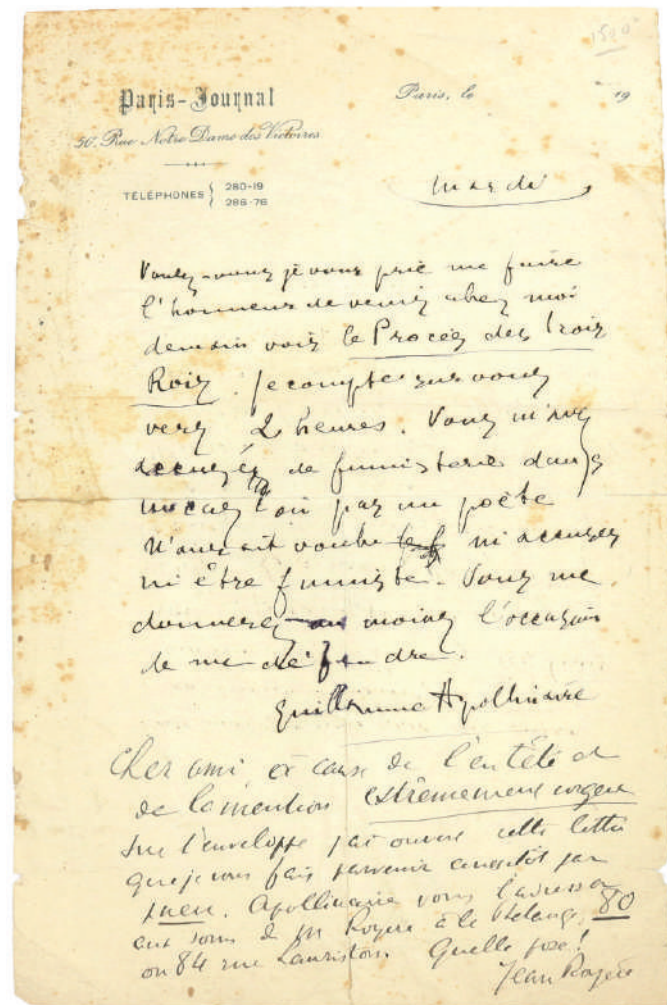 Paris-Journal
50, Rue Notre Dame des Victoires
TÉLÉPHONES { 280-19
286-76
Paris, le 19
mardi
Voulez-vous je vous prie me faire
l'honneur de venir chez moi
demain voir le Procès des Trois
Rois. Je compte sur vous
vers 2 heures. Vous m'avez
accusé de fumisterie dans
un cas où pas un poète
n'aurait voulu ni accuser
ni être fumiste. Vous me
donnerez au moins l'occasion
de me défendre.
Guillaume Apollinaire
Cher ami, à cause de l'entête et
de la mention extrêmement urgent
sur l'enveloppe j'ai ouvert cette lettre
que je vous fais parvenir aussitôt par
pneu. Apollinaire vous l'adresse
aux soins de M Royère à la Phalange, 80
ou 84 rue Lauriston. Quelle pose!
Jean Royère